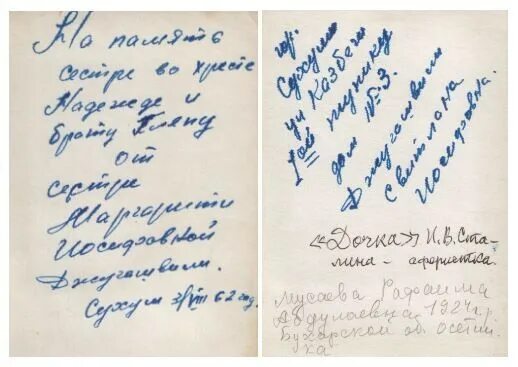 На память
сестре во христе
Надежде и
брату
от
сестри
Маргарити
Иосифовной
Джугашвили.
Сухум 3/VIII 62 год.
гор.
Сухуми
ул Казбеги
1ой тупику
дом №3.
Джугашвили
Светлана
Иосифовна.
«Дочка» И.В.Ста-
лина - аферистка.
Мусаева Рафаима
Абдулаевна 1924г
Бухарской об. осетин-
ка.